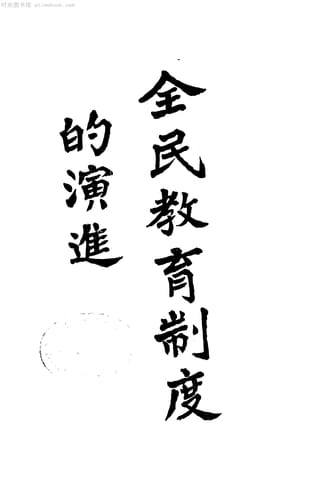 时光图书馆
全民教育制度
的演進